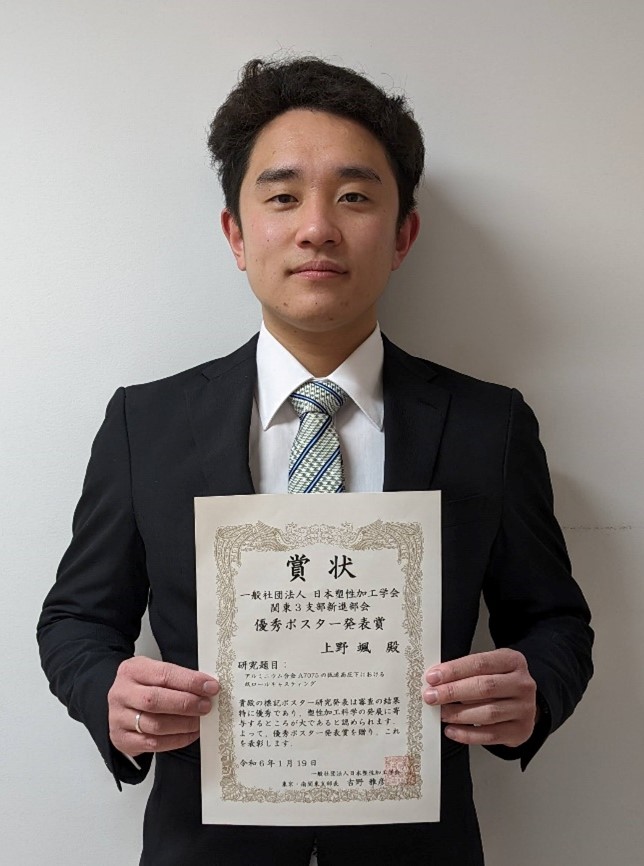 賞状
一般社団法人 日本塑性加工学会
関東3支部新進部会
優秀ポスター発表賞
上野 颯 殿
研究題目:
アルミニウム合金A7075の低速高圧下における
縦ロールキャスティング
貴殿の標記ポスター研究発表は審査の結果
特に優秀であり、塑性加工科学の発展に寄
与するところが大であると認められます.
よって、優秀ポスター発表賞を贈り、これ
を表彰します.
令和6年1月19日
一般社団法人日本塑性加工学会
東京・南関東支部長 吉野 雅彦